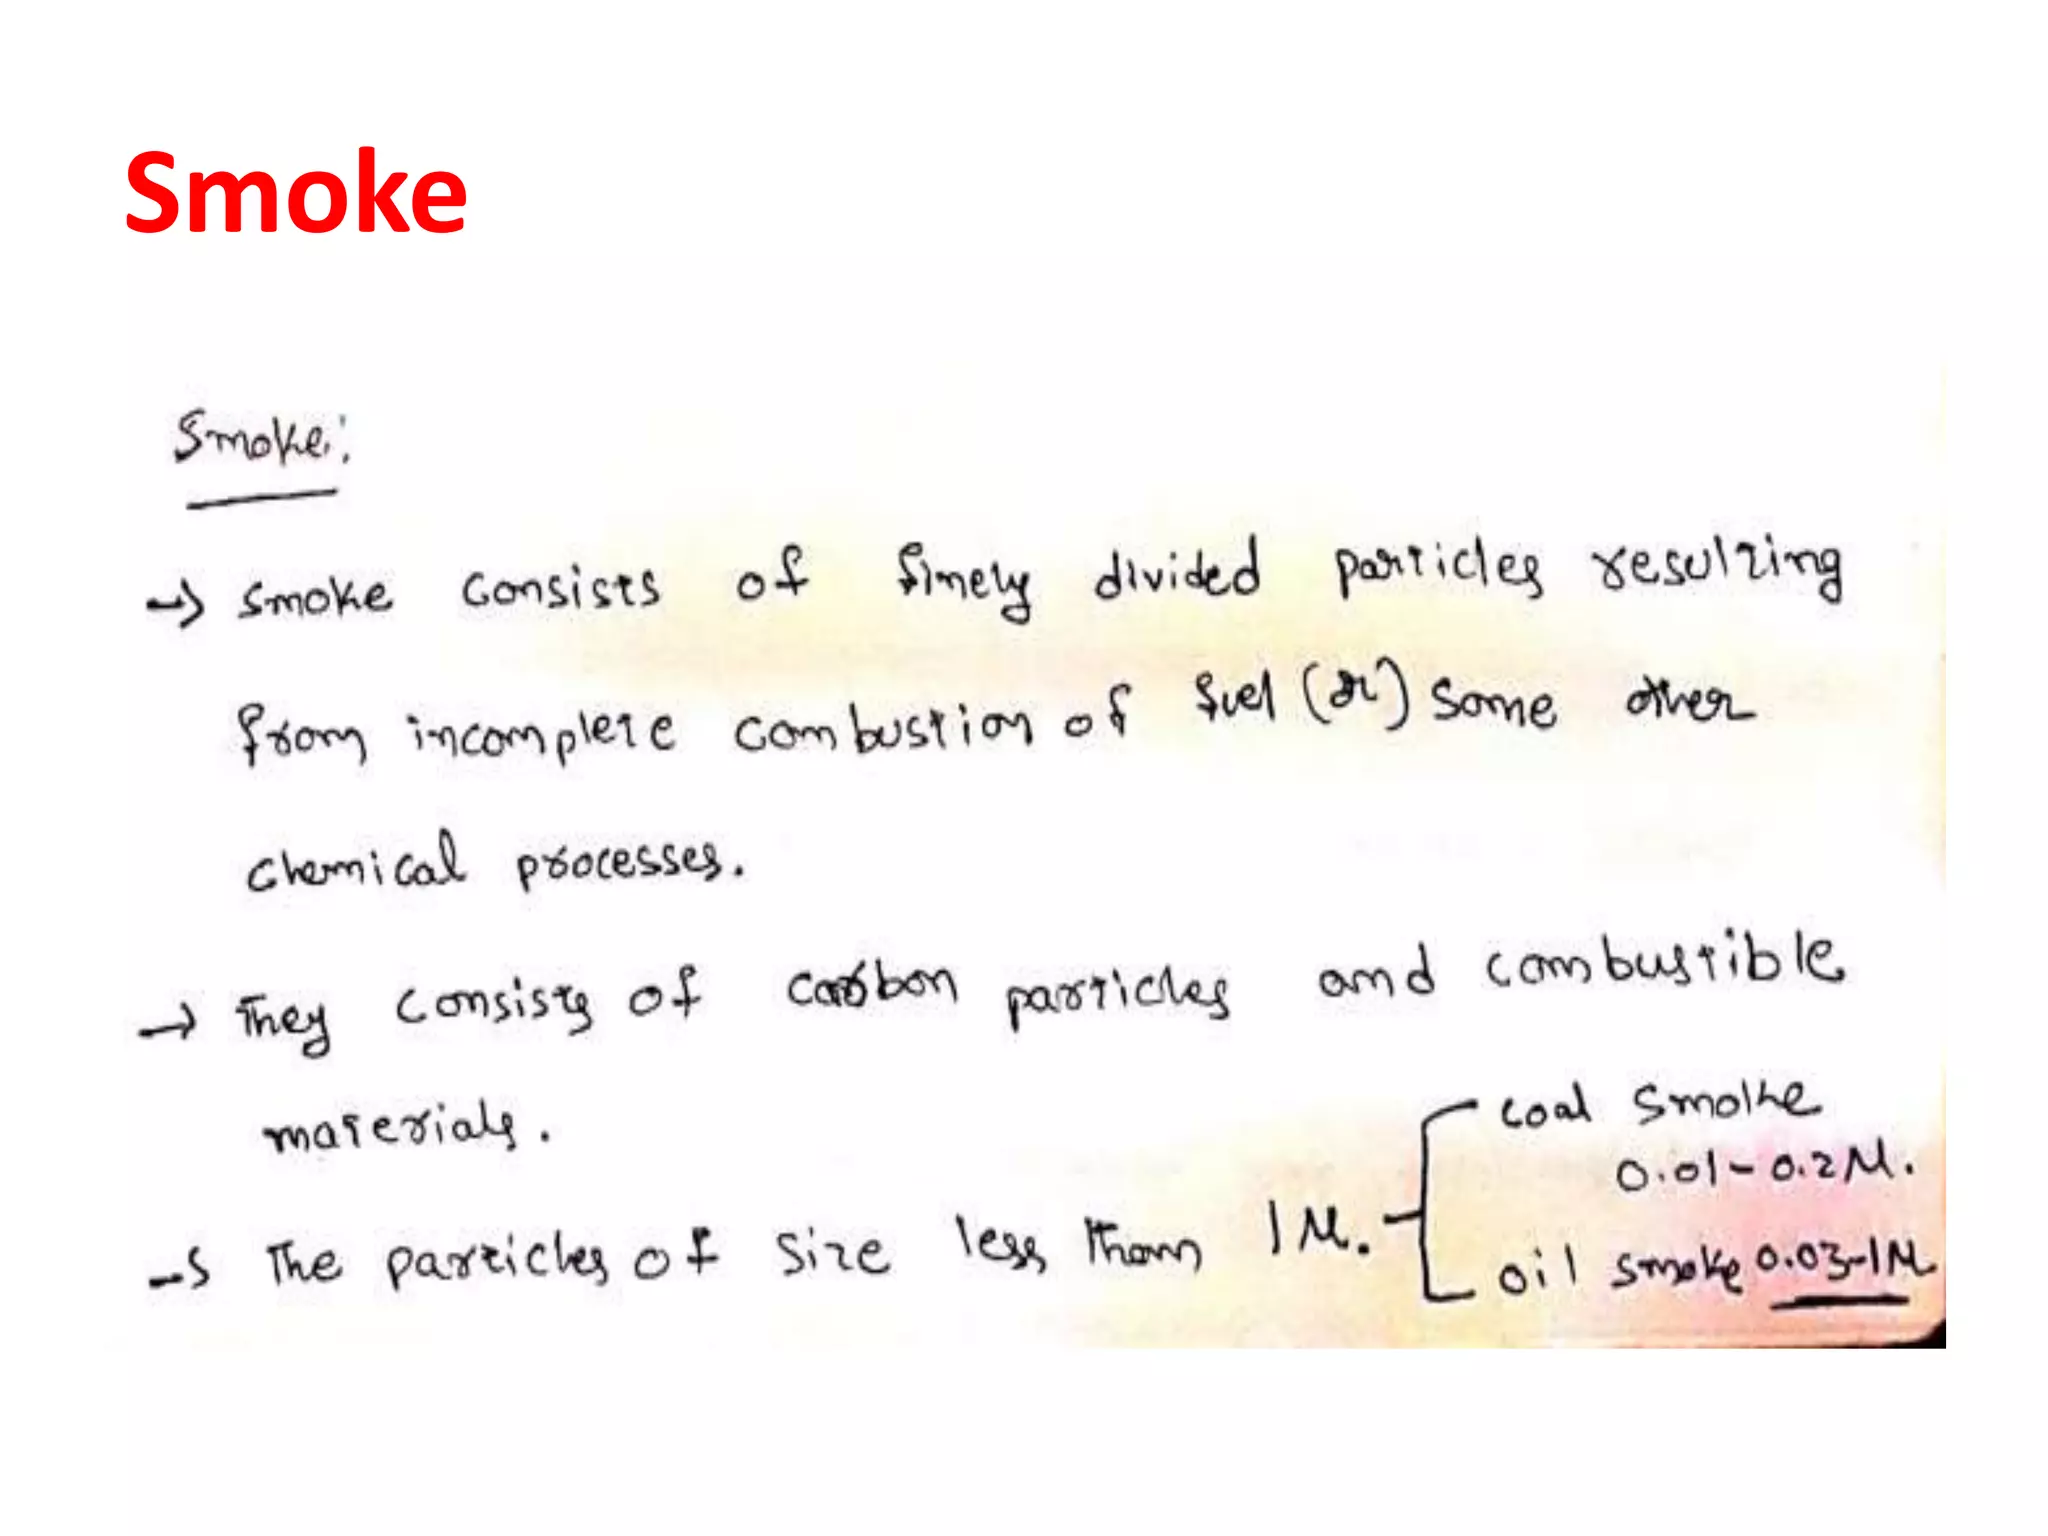 Smoke
Smoke:
→ Smoke consists of finely divided particles resulting
from incomplete combustion of fuel (or) some other
chemical processes.
→ They consists of carbon particles and combustible
materials.
coal smoke
0.01-0.2 M.
→ The particles of size less than 1 M.
oil smoke 0.03-1 M